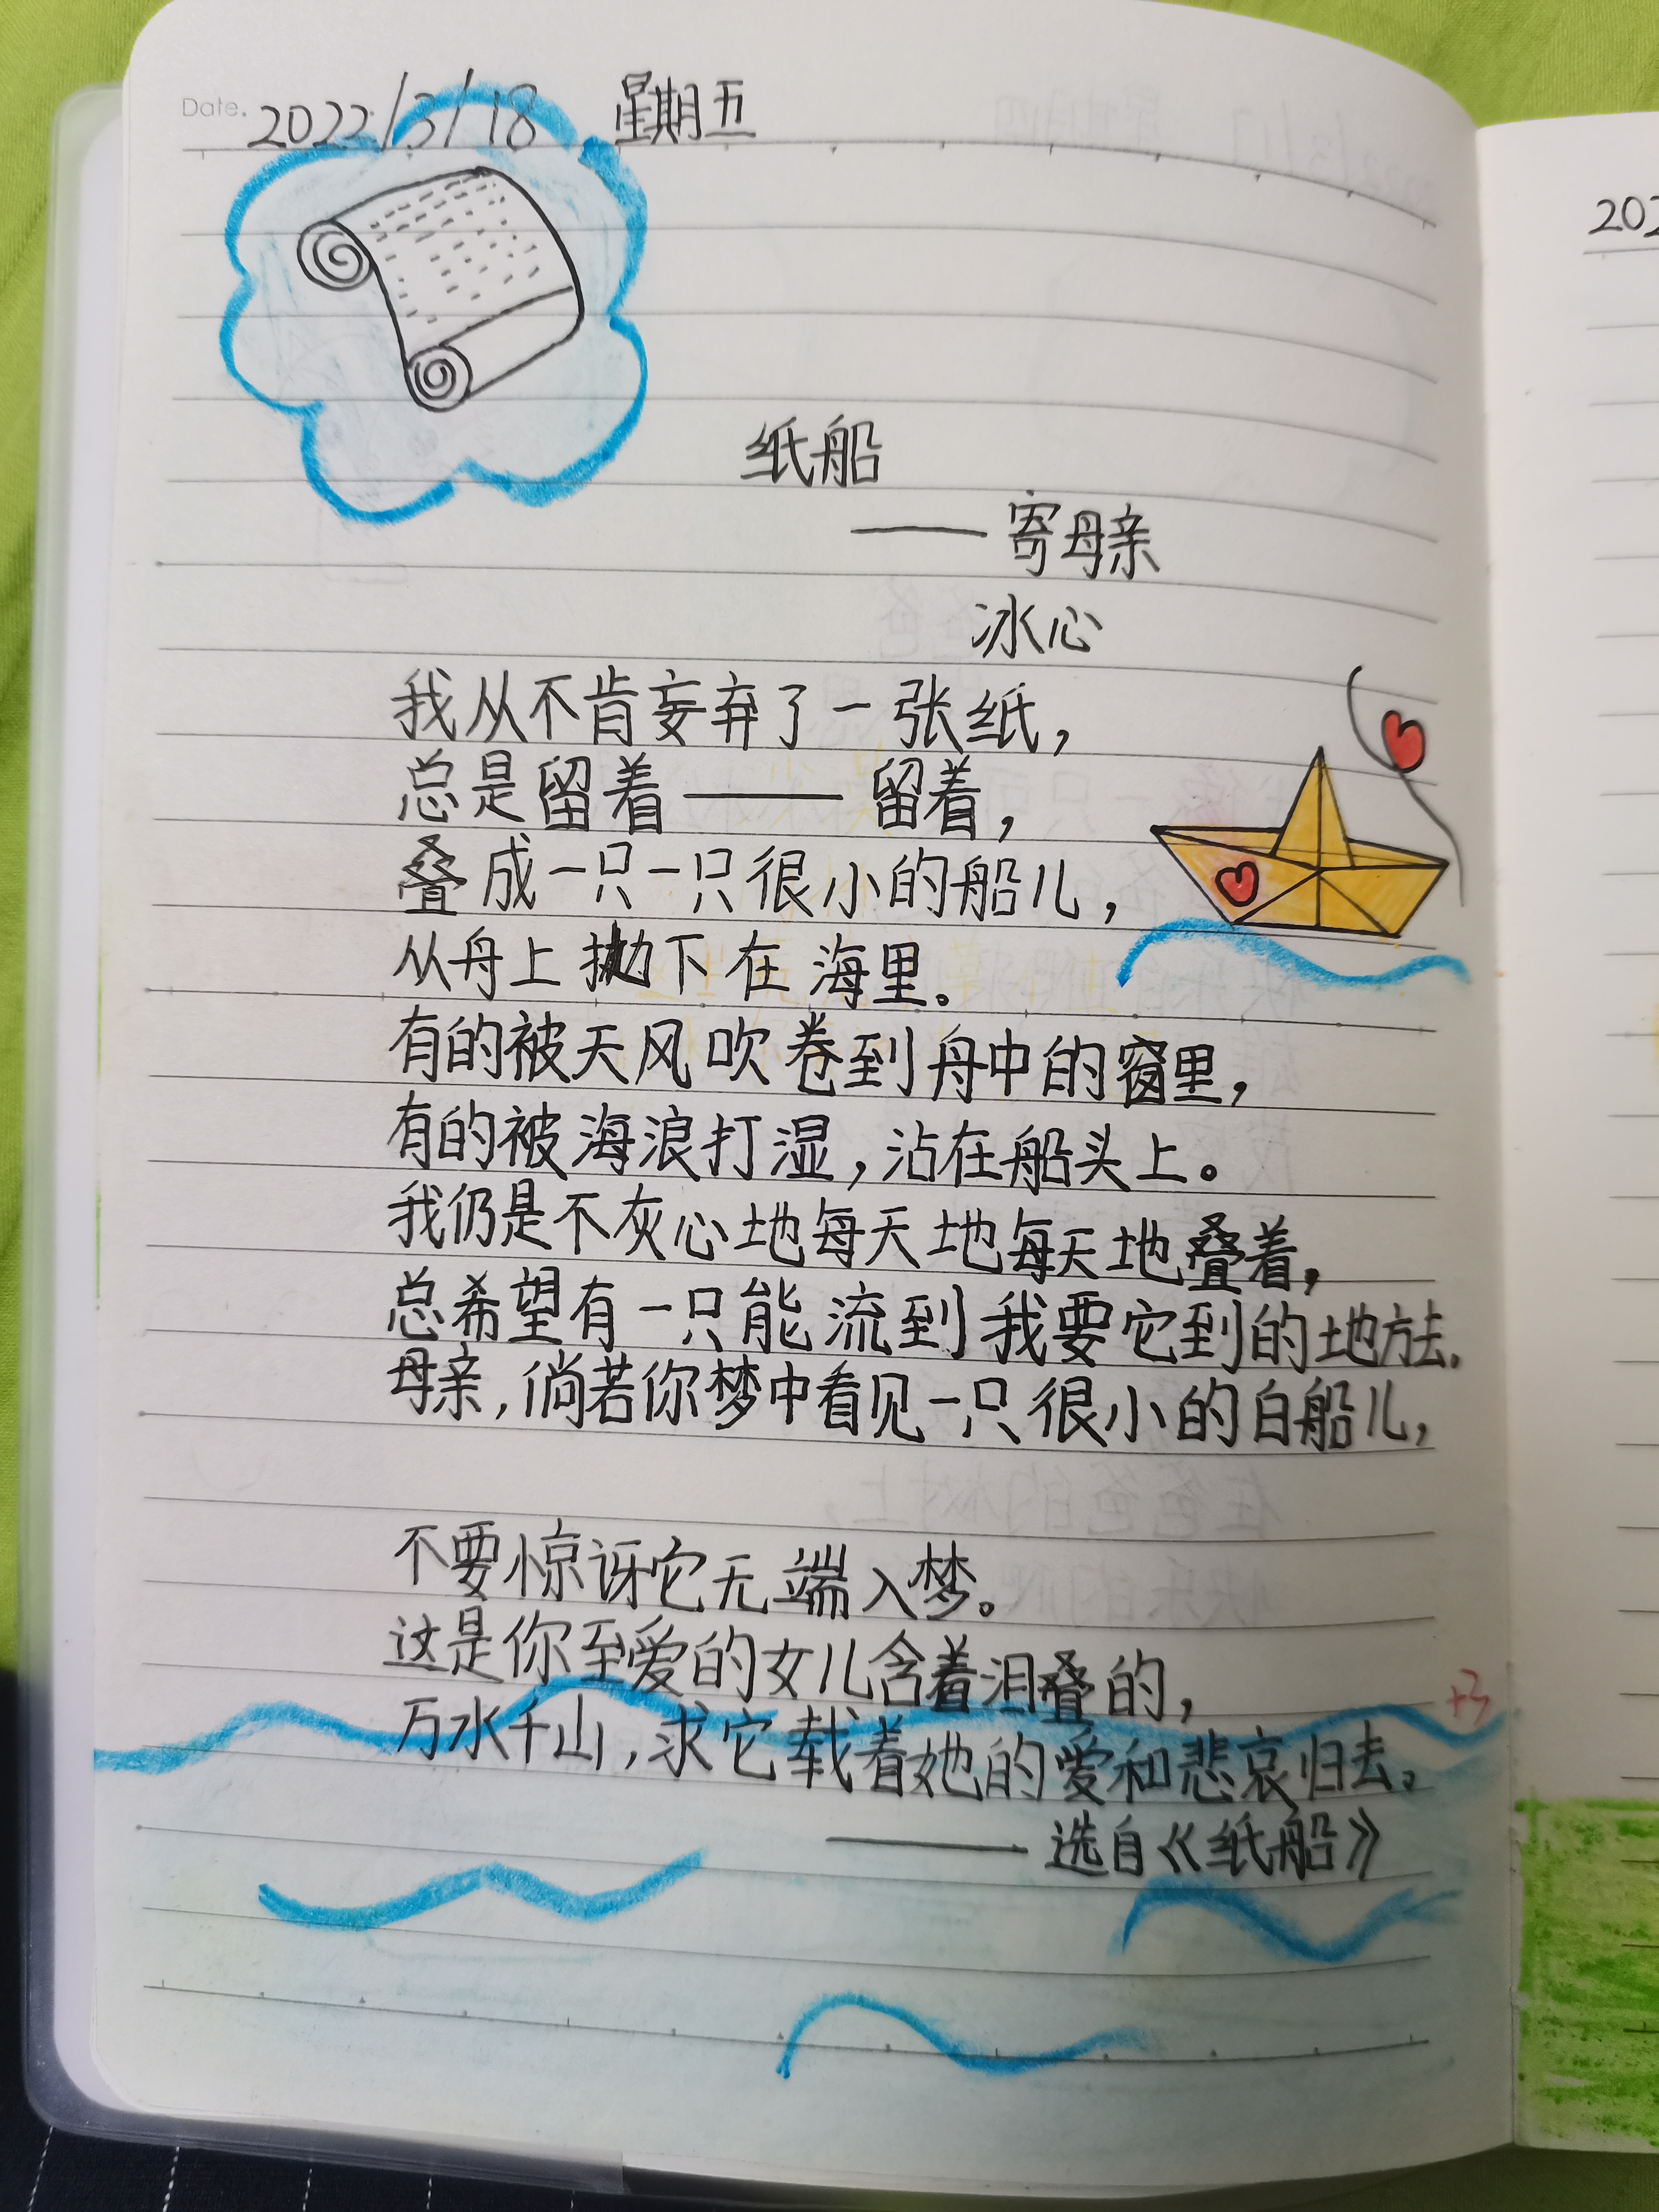 Date. 2022/3/18 星期五
纸船
——寄母亲
冰心
我从不肯妄弃了一张纸，
总是留着——留着，
叠成一只一只很小的船儿，
从舟上抛下在海里。
有的被天风吹卷到舟中的窗里，
有的被海浪打湿，沾在船头上。
我仍是不灰心地每天地每天地叠着，
总希望有一只能流到我要它到的地方去.
母亲，倘若你梦中看见一只很小的白船儿，
不要惊讶它无端入梦。
这是你至爱的女儿含着泪叠的，
万水千山，求它载着她的爱和悲哀归去。
——选自《纸船》
+3
202